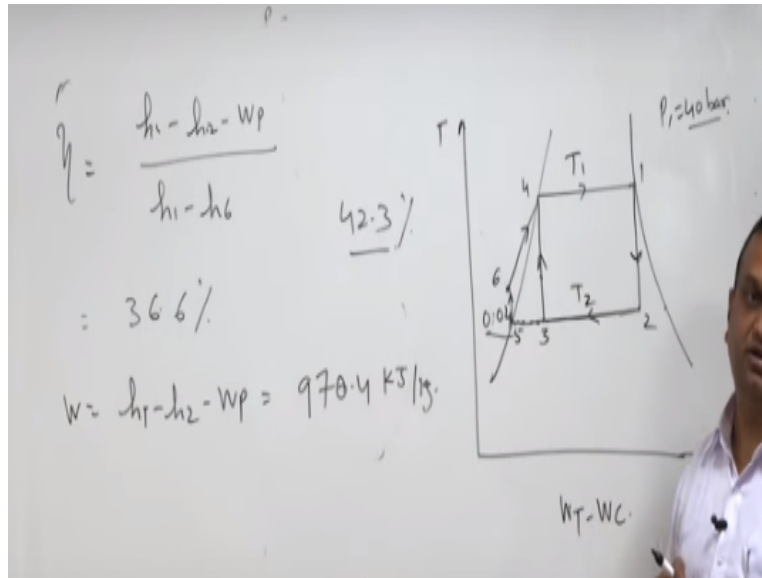 P =
η = h₁ - h₂ - Wp
h₁ - h6
42.3 %
= 36.6 %
W = h₁ - h₂ - Wp = 970.4 KJ/kg.
P₁ = 40 bar.
T
4
T₁
1
6
T₂
5
3
2
W_T - W_C.